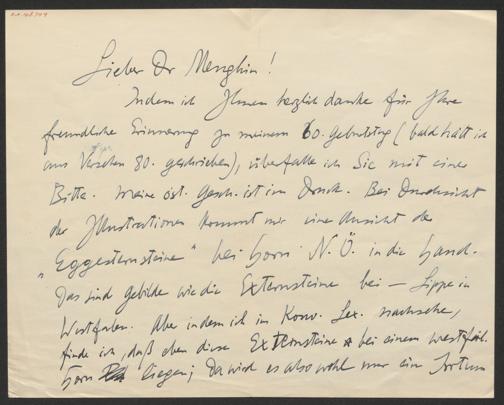 Lieber Dr Menghin!
Indem ich Ihnen herzlich danke für Ihre
freundliche Erinnerung zu meinem 60. Geburtstag (bald hätt ich
aus Versehen 80. geschrieben), überfalle ich Sie mit einer
Bitte. Meine öst. Gesch. ist im Druck. Bei Durchsicht
der Illustrationen kommt mir eine Ansicht der
„Eggesternsteine" bei Horn N.Ö. in die Hand.
Das sind Gebilde wie die Externsteine bei — Lippe in
Westfalen. Aber indem ich im Konv. Lex. nachsehe,
finde ich, daß eben diese Externsteine bei einem westfäl.
Horn liegen; Da wird es also wohl nur ein Irrtum